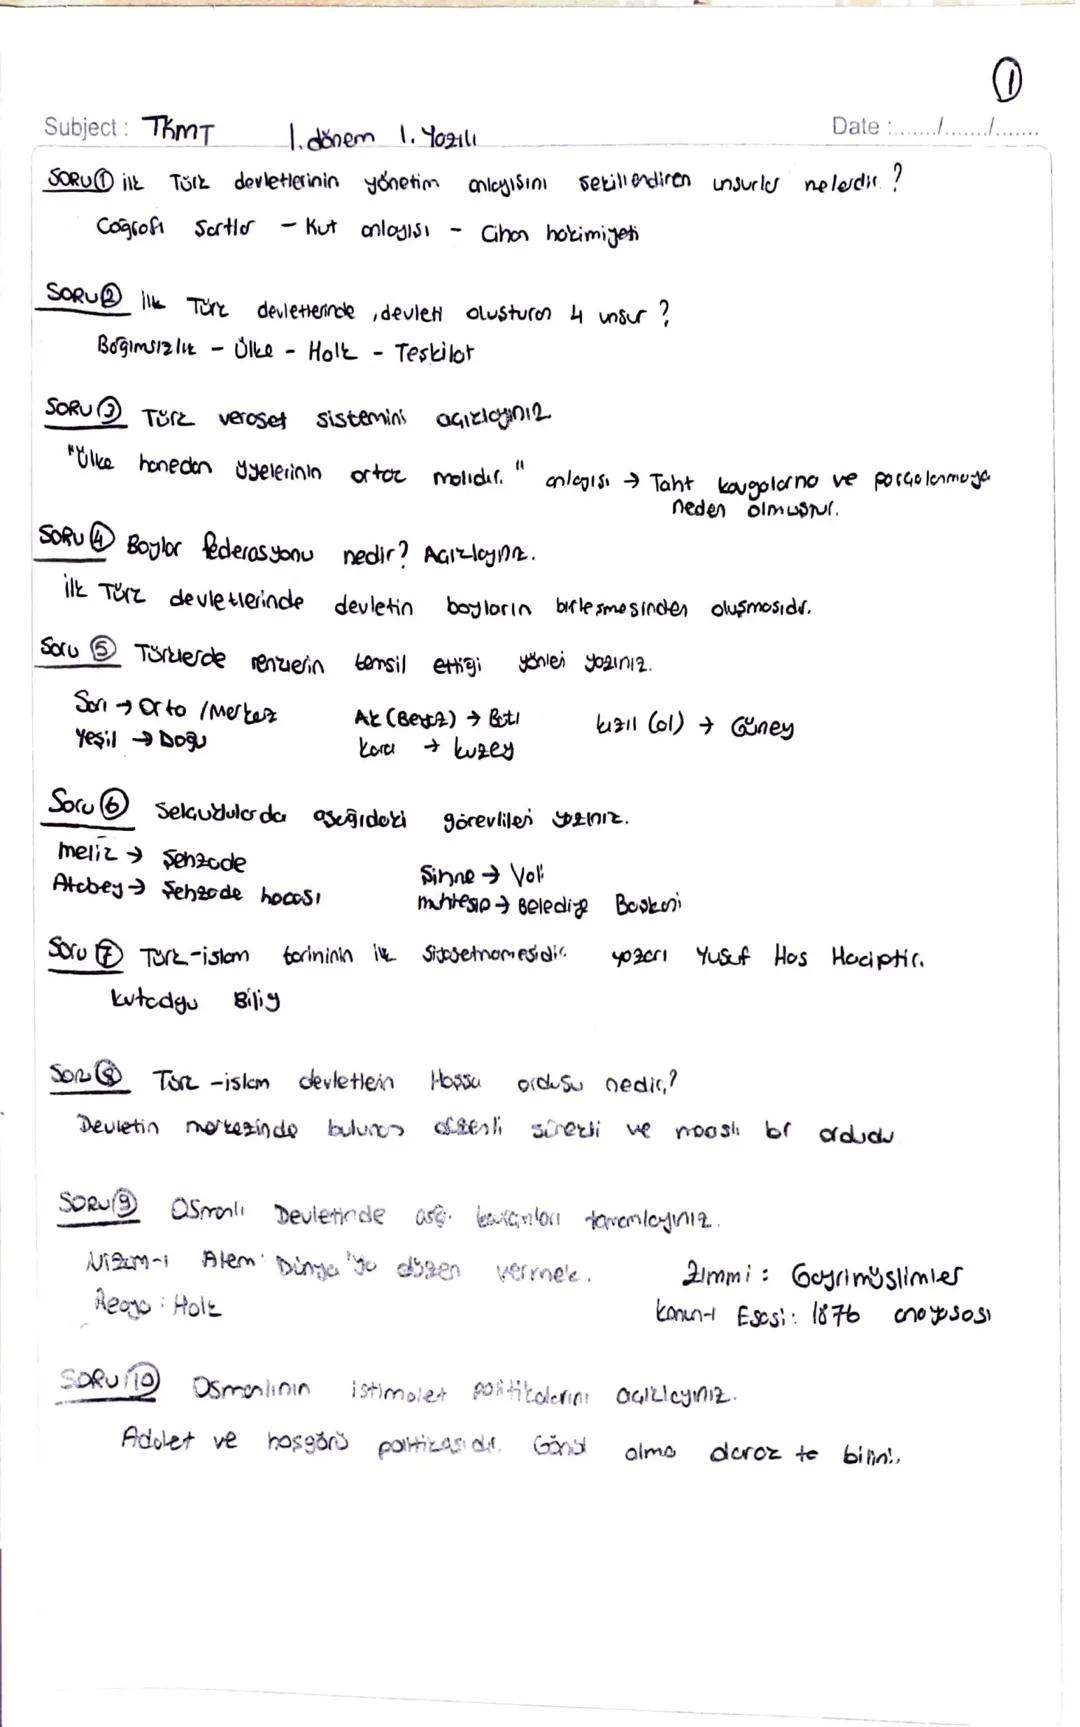 ①
Subject: TKMT 1. dönem 1. Yazılı Date:......./......./.......
SORU ① ilk Türk devletlerinin yönetim anlayışını şekillendiren unsurlar nelerdir?
Coğrafi Şartlar - Kut anlayışı - Cihan hakimiyeti
SORU ② ilk Türk devletlerinde, devleti oluşturan 4 unsur?
Bağımsızlık - Ülke - Halk - Teşkilat
SORU ③ Türk veraset sistemini açıklayınız
"Ülke hanedan üyelerinin ortak malıdır." anlayışı → Taht kavgalarına ve parçalanmaya
neden olmuştur.
SORU ④ Boylar federasyonu nedir? Açıklayınız.
ilk Türk devletlerinde devletin boyların birleşmesinden oluşmasıdır.
Soru ⑤ Türklerde renklerin temsil ettiği yönleri yazınız.
Sarı → Orta / Merkez Ak (Beyaz) → Batı kızıl (al) → Güney
Yeşil → Doğu Kara → kuzey
Soru ⑥ Selçuklularda aşağıdaki görevlileri yazınız.
melik → Şehzade Şihne → Vali
Atabey → Şehzade hocası muhtesip → Belediye Başkanı
Soru ⑦ Türk-islam tarihinin ilk Siyasetnamesidir. yazarı Yusuf Has Haciptir.
kutadgu Bilig
Soru ⑧ Türk-islam devletleri Hassa ordusu nedir?
Devletin merkezinde bulunan düzenli sürekli ve maaşlı bir ordudu
SORU ⑨ Osmanlı Devletinde aşğ. kavramları tanımlayınız.
Nizam-ı Alem: Dünya'ya düzen vermek. Zımmi: Gayrimüslimler
Reaya: Halk Kanun-ı Esasi: 1876 anayasası
SORU ⑩ Osmanlının istimalet politikalarını açıklayınız.
Adalet ve hoşgörü politikasıdır. Gönül alma olarak ta bilinir.